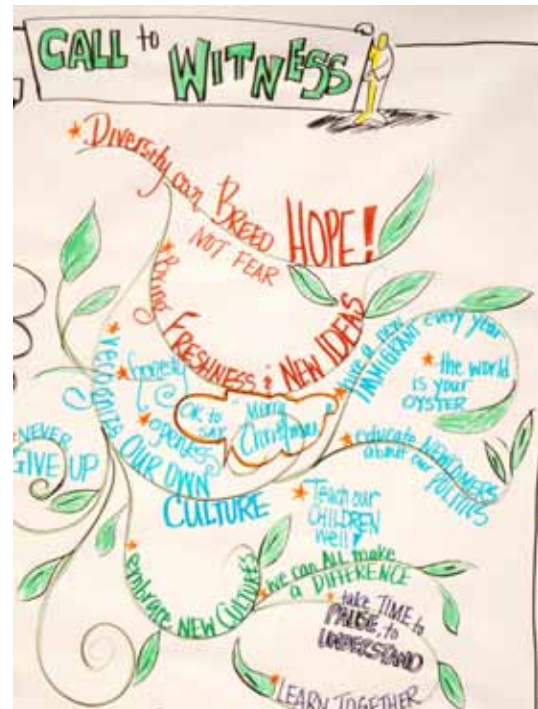 CALL to WITNESS
Diversity can BREED HOPE!
NOT FEAR
Bring FRESHNESS & NEW IDEAS
have a new
IMMIGRANT every year
the world
is your
OYSTER
recognize OUR OWN
CULTURE
honesty
openness
OK to
say
"Merry
Christmas"
educate NEWCOMERS
about our POLITICS
NEVER
GIVE UP
Teach our
CHILDREN
Well!
embrace NEW CULTURES
we can ALL make
a DIFFERENCE
take TIME to
PAUSE, to
UNDERSTAND
LEARN TOGETHER